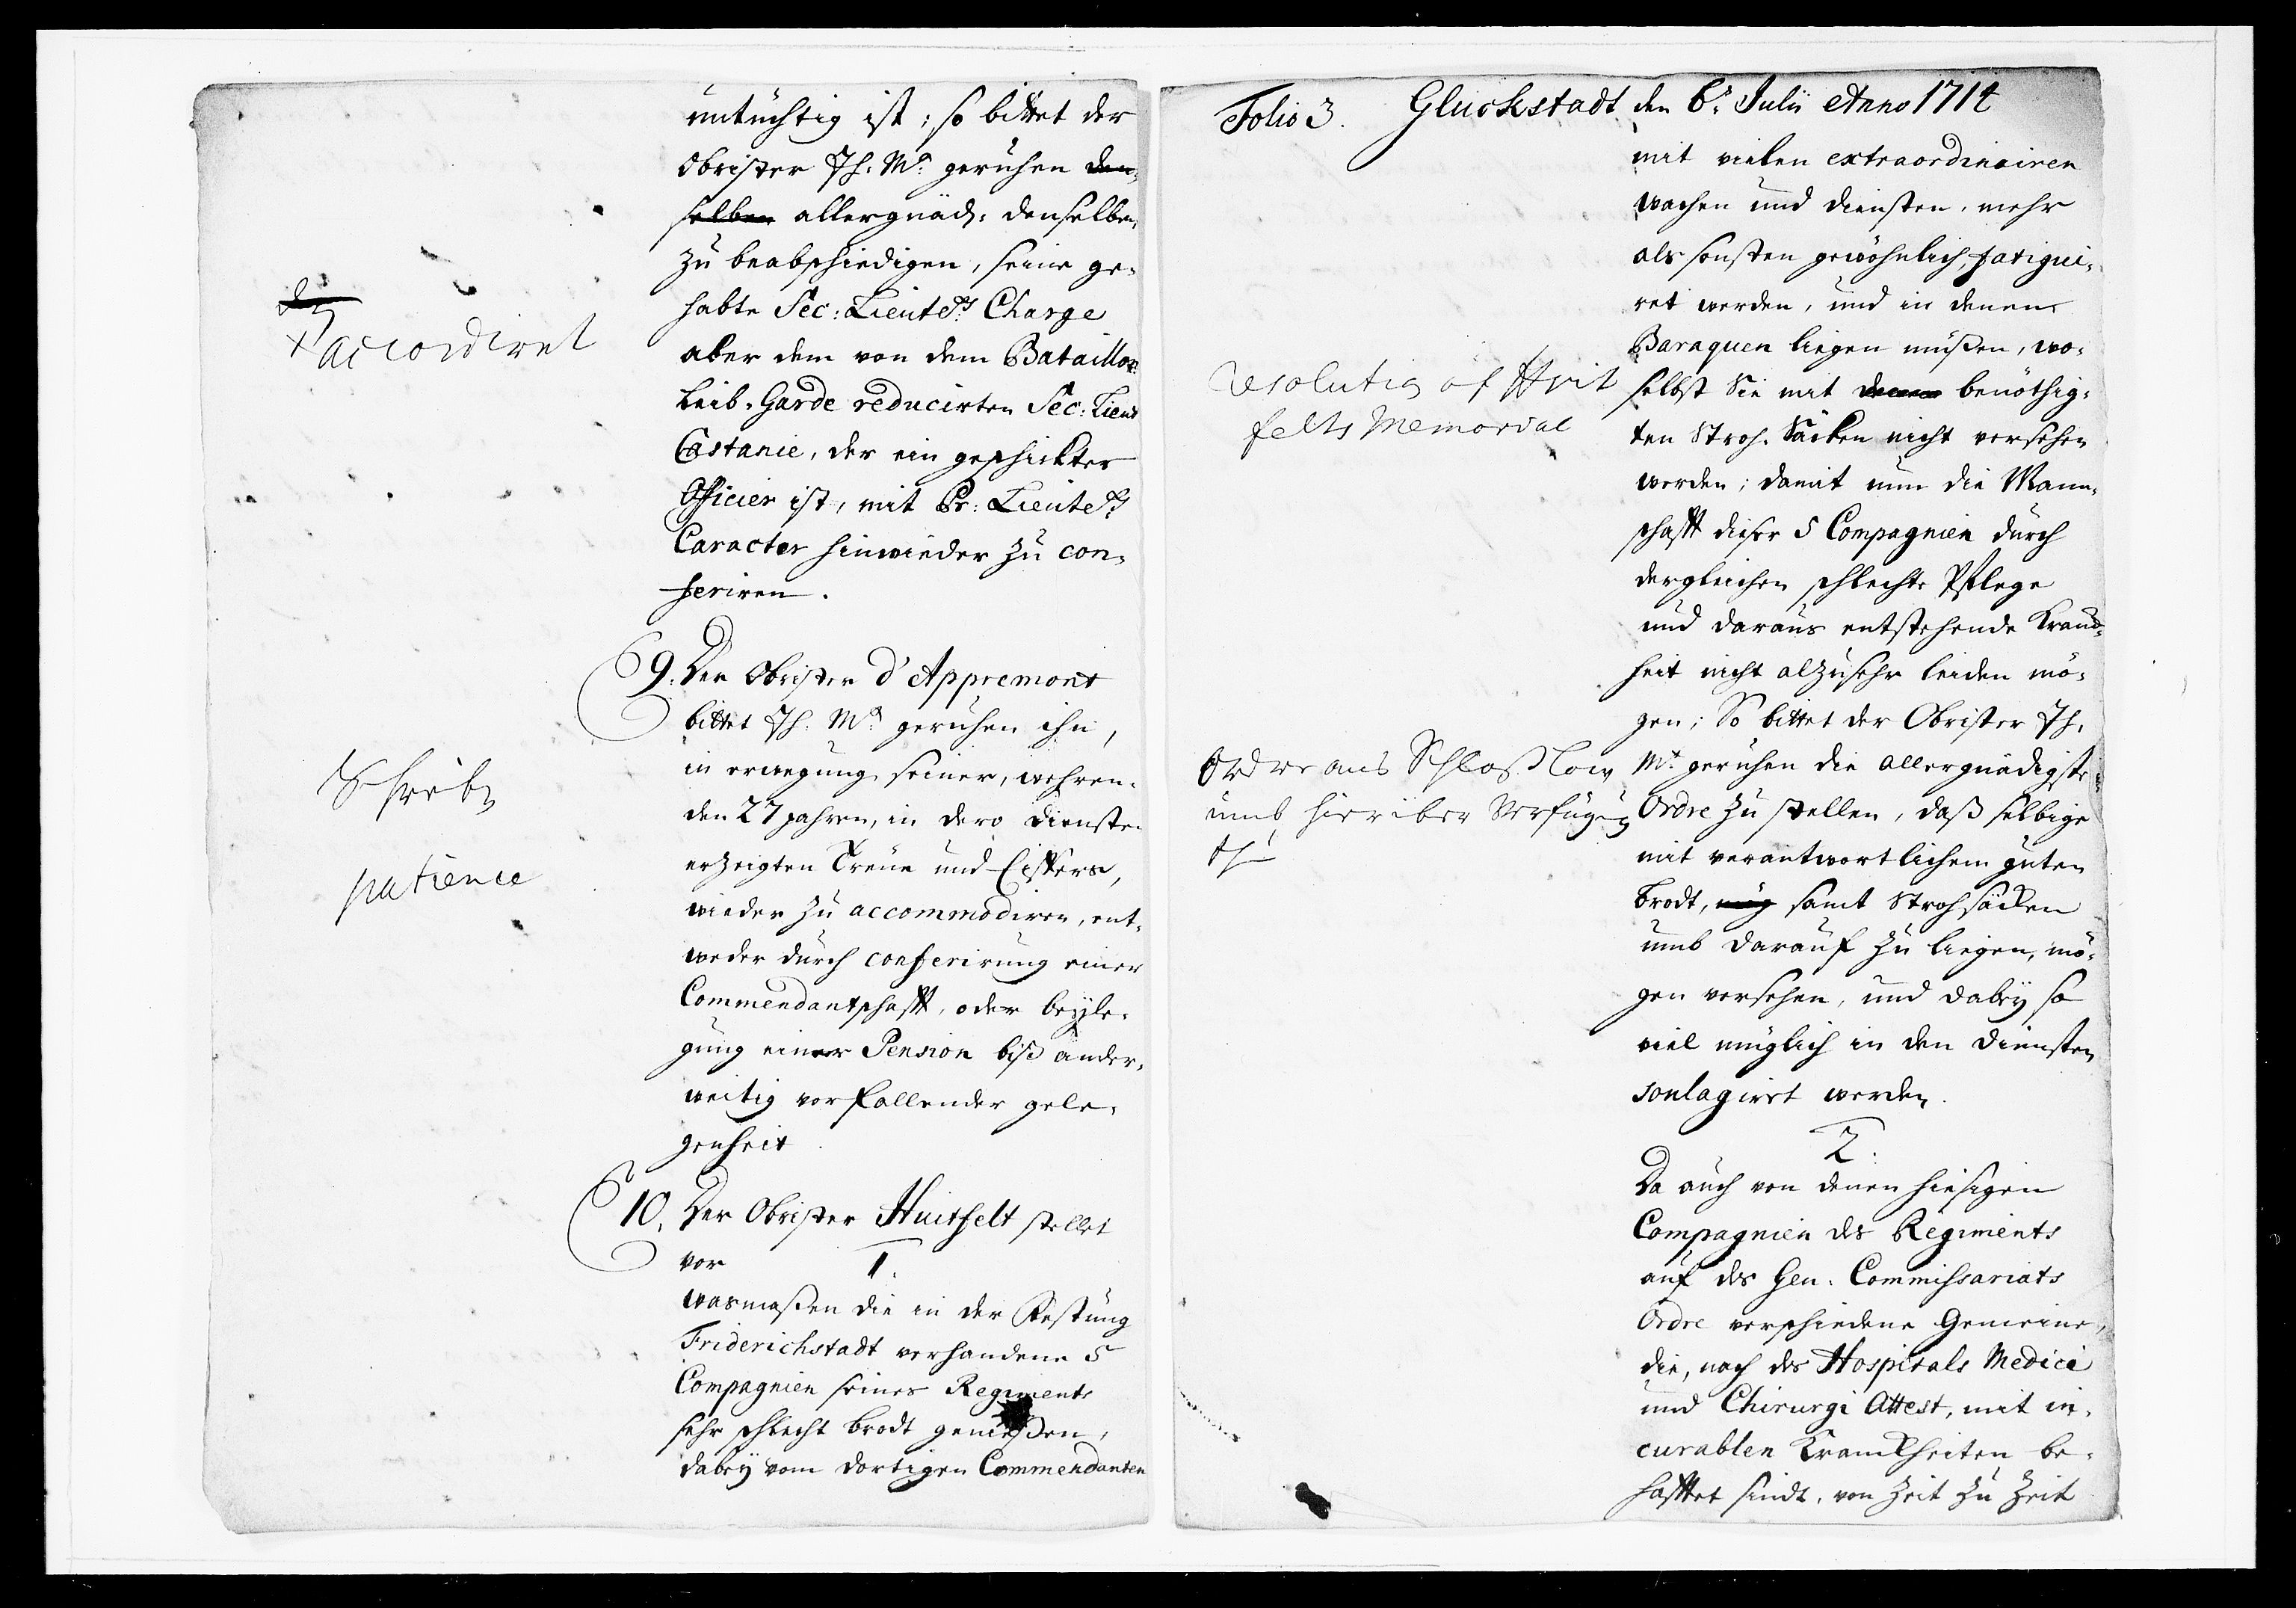 untüchtig ist; so bittet der
Obrister Ih. Mt. geruhen den-
selben allergnäd: denselben
zu beabschiedigen, seine ge-
habte Sec: Lieutets Charge
aber dem von dem Bataillon
Leib-Garde reducirten Sec: Lieut
Castanie, der ein geschickter
Officier ist, mit Pr: Lieutets
Caracter hinwieder zu con-
feriren.
accordiret
9. Der Obrister d'Appremont
bittet Ih. Mt. geruhen ihn,
in erwegung seiner, wehren-
den 27 Jahren, in dero Diensten
erzeigten Treue und Eiffers,
wieder zu accommodiren, ent-
weder durch conferirung einer
Commendantschafft, oder beyle-
gung einer Pension biß ander-
weitig vorfallender gele-
genheit
patience
10. Der Obrister Huitfelt stellet
vor
1.
wasmaßen die in der Festung
Friderichstadt verhandene 5
Compagnien seines Regiments
sehr schlecht brodt genießen,
dabey vom dortigen Commendanten
Folio 3. Gluckstadt den 6t Julii Anno 1714
mit vielen extraordinairen
wachen und diensten, mehr
als sonsten gewöhnlich, fatigui-
ret werden, und in denen
Baraquen liegen müßen, wo-
selbst Sie mit denen benöthig-
ten Stroh-Säcken nicht versehen
werden; damit nun die Mann-
schafft dieser 5 Compagnien durch
dergleichen schlechte Pflege
und daraus entstehende Kranck-
heit nicht alzusehr leiden mö-
gen; So bittet der Obrister Ih.
Mt. geruhen die allergnädigste
Ordre zu stellen, daß selbige
mit verantwortlichem guten
brodt, samt Strohsäcken
umb darauf zu liegen, mö-
gen versehen, und dabey so
viel müglich in den Diensten
soulagirt werden.
Resolution of Hvit
felts Memorial
Ordre ans Schloß
umb hierüber Verfügung
2.
Da auch von denen hiesigen
Compagnien des Regiments
auf des Gen. Commissariats
Ordre verschiedene Gemeine,
die, nach des Hospitals Medici
und Chirurgi Attest, mit in-
curablen Kranckheiten be-
hafftet sindt, von Zeit zu Zeit